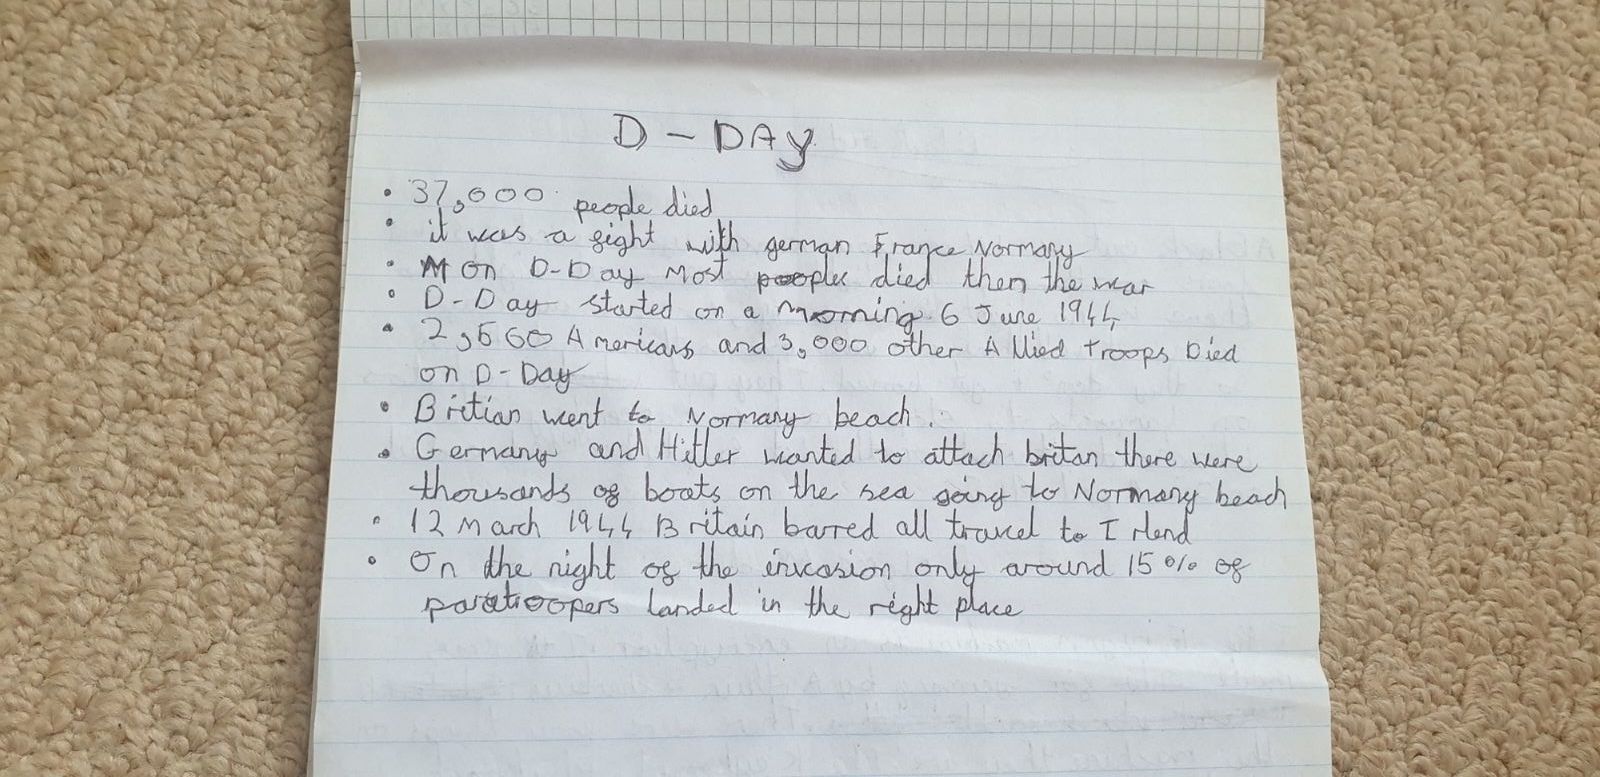 D - DAY
• 37,000 people died
• it was a fight with german France Normany
• M on D-Day Most people died then the war
• D-Day started on a morning 6 June 1944
• 2,560 Americans and 3,000 other Allied troops Died
on D-Day
• Britian went to Normany beach.
• Germany and Hitler wanted to attach britan there were
thousands of boats on the sea going to Normany beach
• 12 March 1944 Britain barred all travel to Irlend
• On the night of the invasion only around 15% of
paratroopers landed in the right place